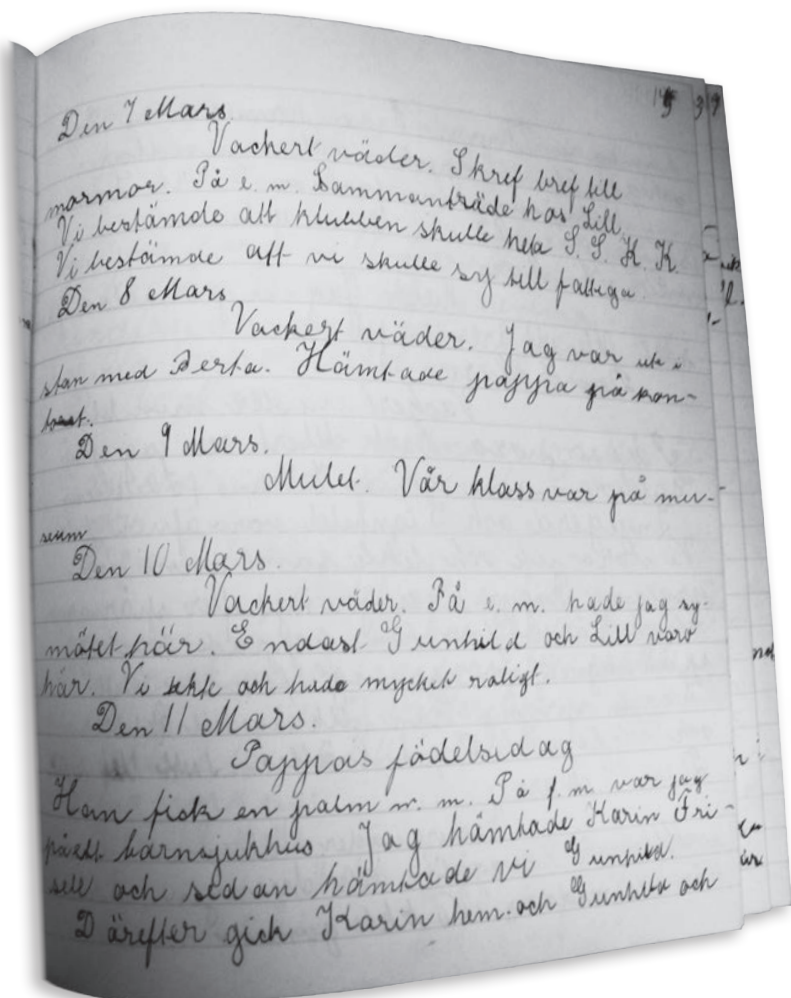 Den 7 Mars.
Vackert väder. Skref bref till
mormor. På e. m. Sammanträde hos Lill.
Vi bestämde att klubben skulle heta S. S. K. K.
Vi bestämde att vi skulle sy till fattiga.
Den 8 Mars
Vackert väder. Jag var ute i
stan med Berta. Hämtade pappa på kon-
toret.
Den 9 Mars.
Mulet. Vår klass var på mu-
seum
Den 10 Mars.
Vackert väder. På e. m. hade jag sy-
mötet här. Endast Gunhild och Lill voro
här. Vi och hade mycket roligt.
Den 11 Mars.
Pappas födelsedag
Han fick en palm m. m. På f. m. var jag
på ett barnsjukhus Jag hämtade Karin Fri-
sell och sedan hämtade vi Gunhild.
Därefter gick Karin hem och Gunhild och